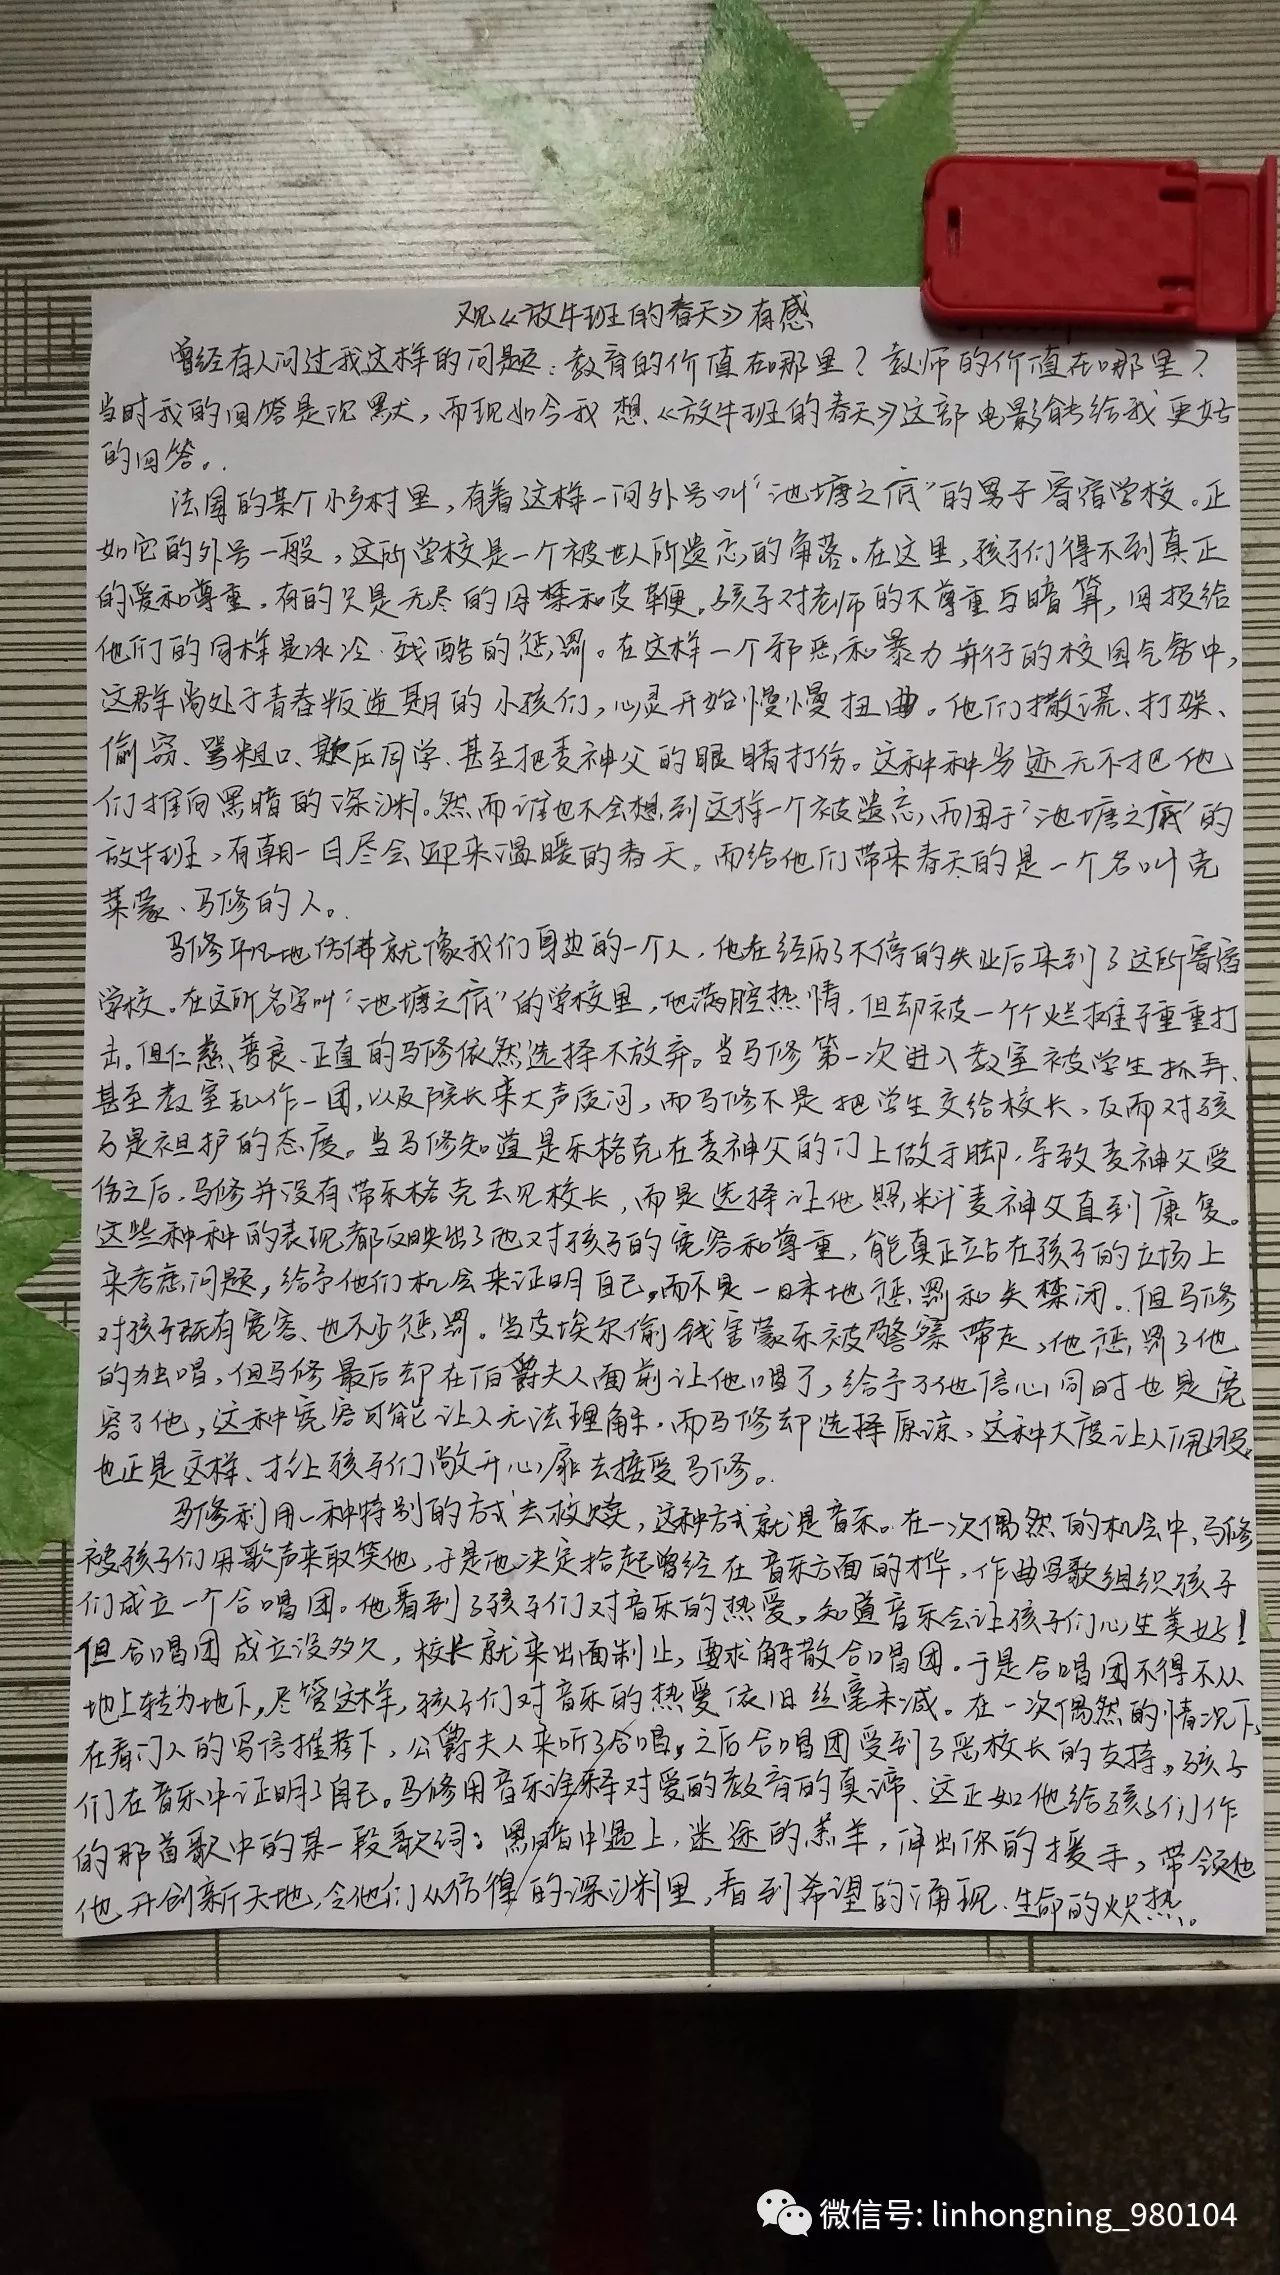 观《放牛班的春天》有感
曾经有人问过我这样的问题：教育的价值在哪里？教师的价值在哪里？
当时我的回答是沉默，而现如今我想《放牛班的春天》这部电影能给我更好
的回答。
法国的某个小乡村里，有着这样一间外号叫“池塘之底”的男子寄宿学校。正
如它的外号一般，这所学校是一个被世人所遗忘的角落。在这里，孩子们得不到真正
的爱和尊重，有的只是无尽的囚禁和皮鞭。孩子对老师的不尊重与暗算，回报给
他们的同样是冰冷、残酷的惩罚。在这样一个邪恶和暴力并行的校园气氛中，
这群尚处于青春叛逆期的小孩们，心灵开始慢慢扭曲。他们撒谎、打架、
偷窃、骂粗口、欺压同学、甚至把麦神父的眼睛打伤。这种种劣迹无不把他
们推向黑暗的深渊。然而谁也不会想到这样一个被遗忘，而困于“池塘之底”的
放牛班，有朝一日尽会迎来温暖的春天。而给他们带来春天的是一个名叫克
莱蒙、马修的人。
马修平凡地仿佛就像我们身边的一个人，他在经历了不停的失业后来到了这所寄宿
学校。在这所名字叫“池塘之底”的学校里，他满腔热情，但却被一个个烂摊子重重打
击。但仁慈、善良、正直的马修依然选择不放弃。当马修第一次进入教室被学生抓弄、
甚至教室乱作一团，以及院长来大声质问，而马修不是把学生交给校长，反而对孩
子是袒护的态度。当马修知道是乐格克在麦神父的门上做手脚，导致麦神父受
伤之后，马修并没有带乐格克去见校长，而是选择让他照料麦神父直到康复。
这些种种的表现都反映出了他对孩子的宽容和尊重，能真正站在孩子的立场上
来考虑问题，给予他们机会来证明自己，而不是一味地惩罚和关禁闭。但马修
对孩子既有宽容、也不少惩罚。当皮埃尔偷钱害蒙乐被警察带走，他惩罚了他
的独唱，但马修最后却在伯爵夫人面前让他唱了，给予了他信心同时也是宽
容了他，这种宽容可能让人无法理解，而马修却选择原谅、这种大度让人佩服。
也正是这样、才让孩子们敞开心扉去接受马修。
马修利用一种特别的方式去救赎，这种方式就是音乐。在一次偶然的机会中，马修
被孩子们用歌声来取笑他，于是他决定拾起曾经在音乐方面的才华，作曲写歌组织孩子
们成立一个合唱团。他看到了孩子们对音乐的热爱，知道音乐会让孩子们心生美好！
但合唱团成立没多久，校长就来出面制止，要求解散合唱团。于是合唱团不得不从
地上转为地下，尽管这样，孩子们对音乐的热爱依旧丝毫未减。在一次偶然的情况下，
在看门人的写信推荐下，公爵夫人来听了合唱，之后合唱团受到了恶校长的支持。孩子
们在音乐中证明了自己。马修用音乐诠释对爱的教育的真谛、这正如他给孩子们作
的那首歌中的某一段歌词：黑暗中遇上，迷途的羔羊，伸出你的援手，带领他
他开创新天地，令他们从彷徨的深渊里，看到希望的涌现、生命的炽热。
微信号: linhongning_980104